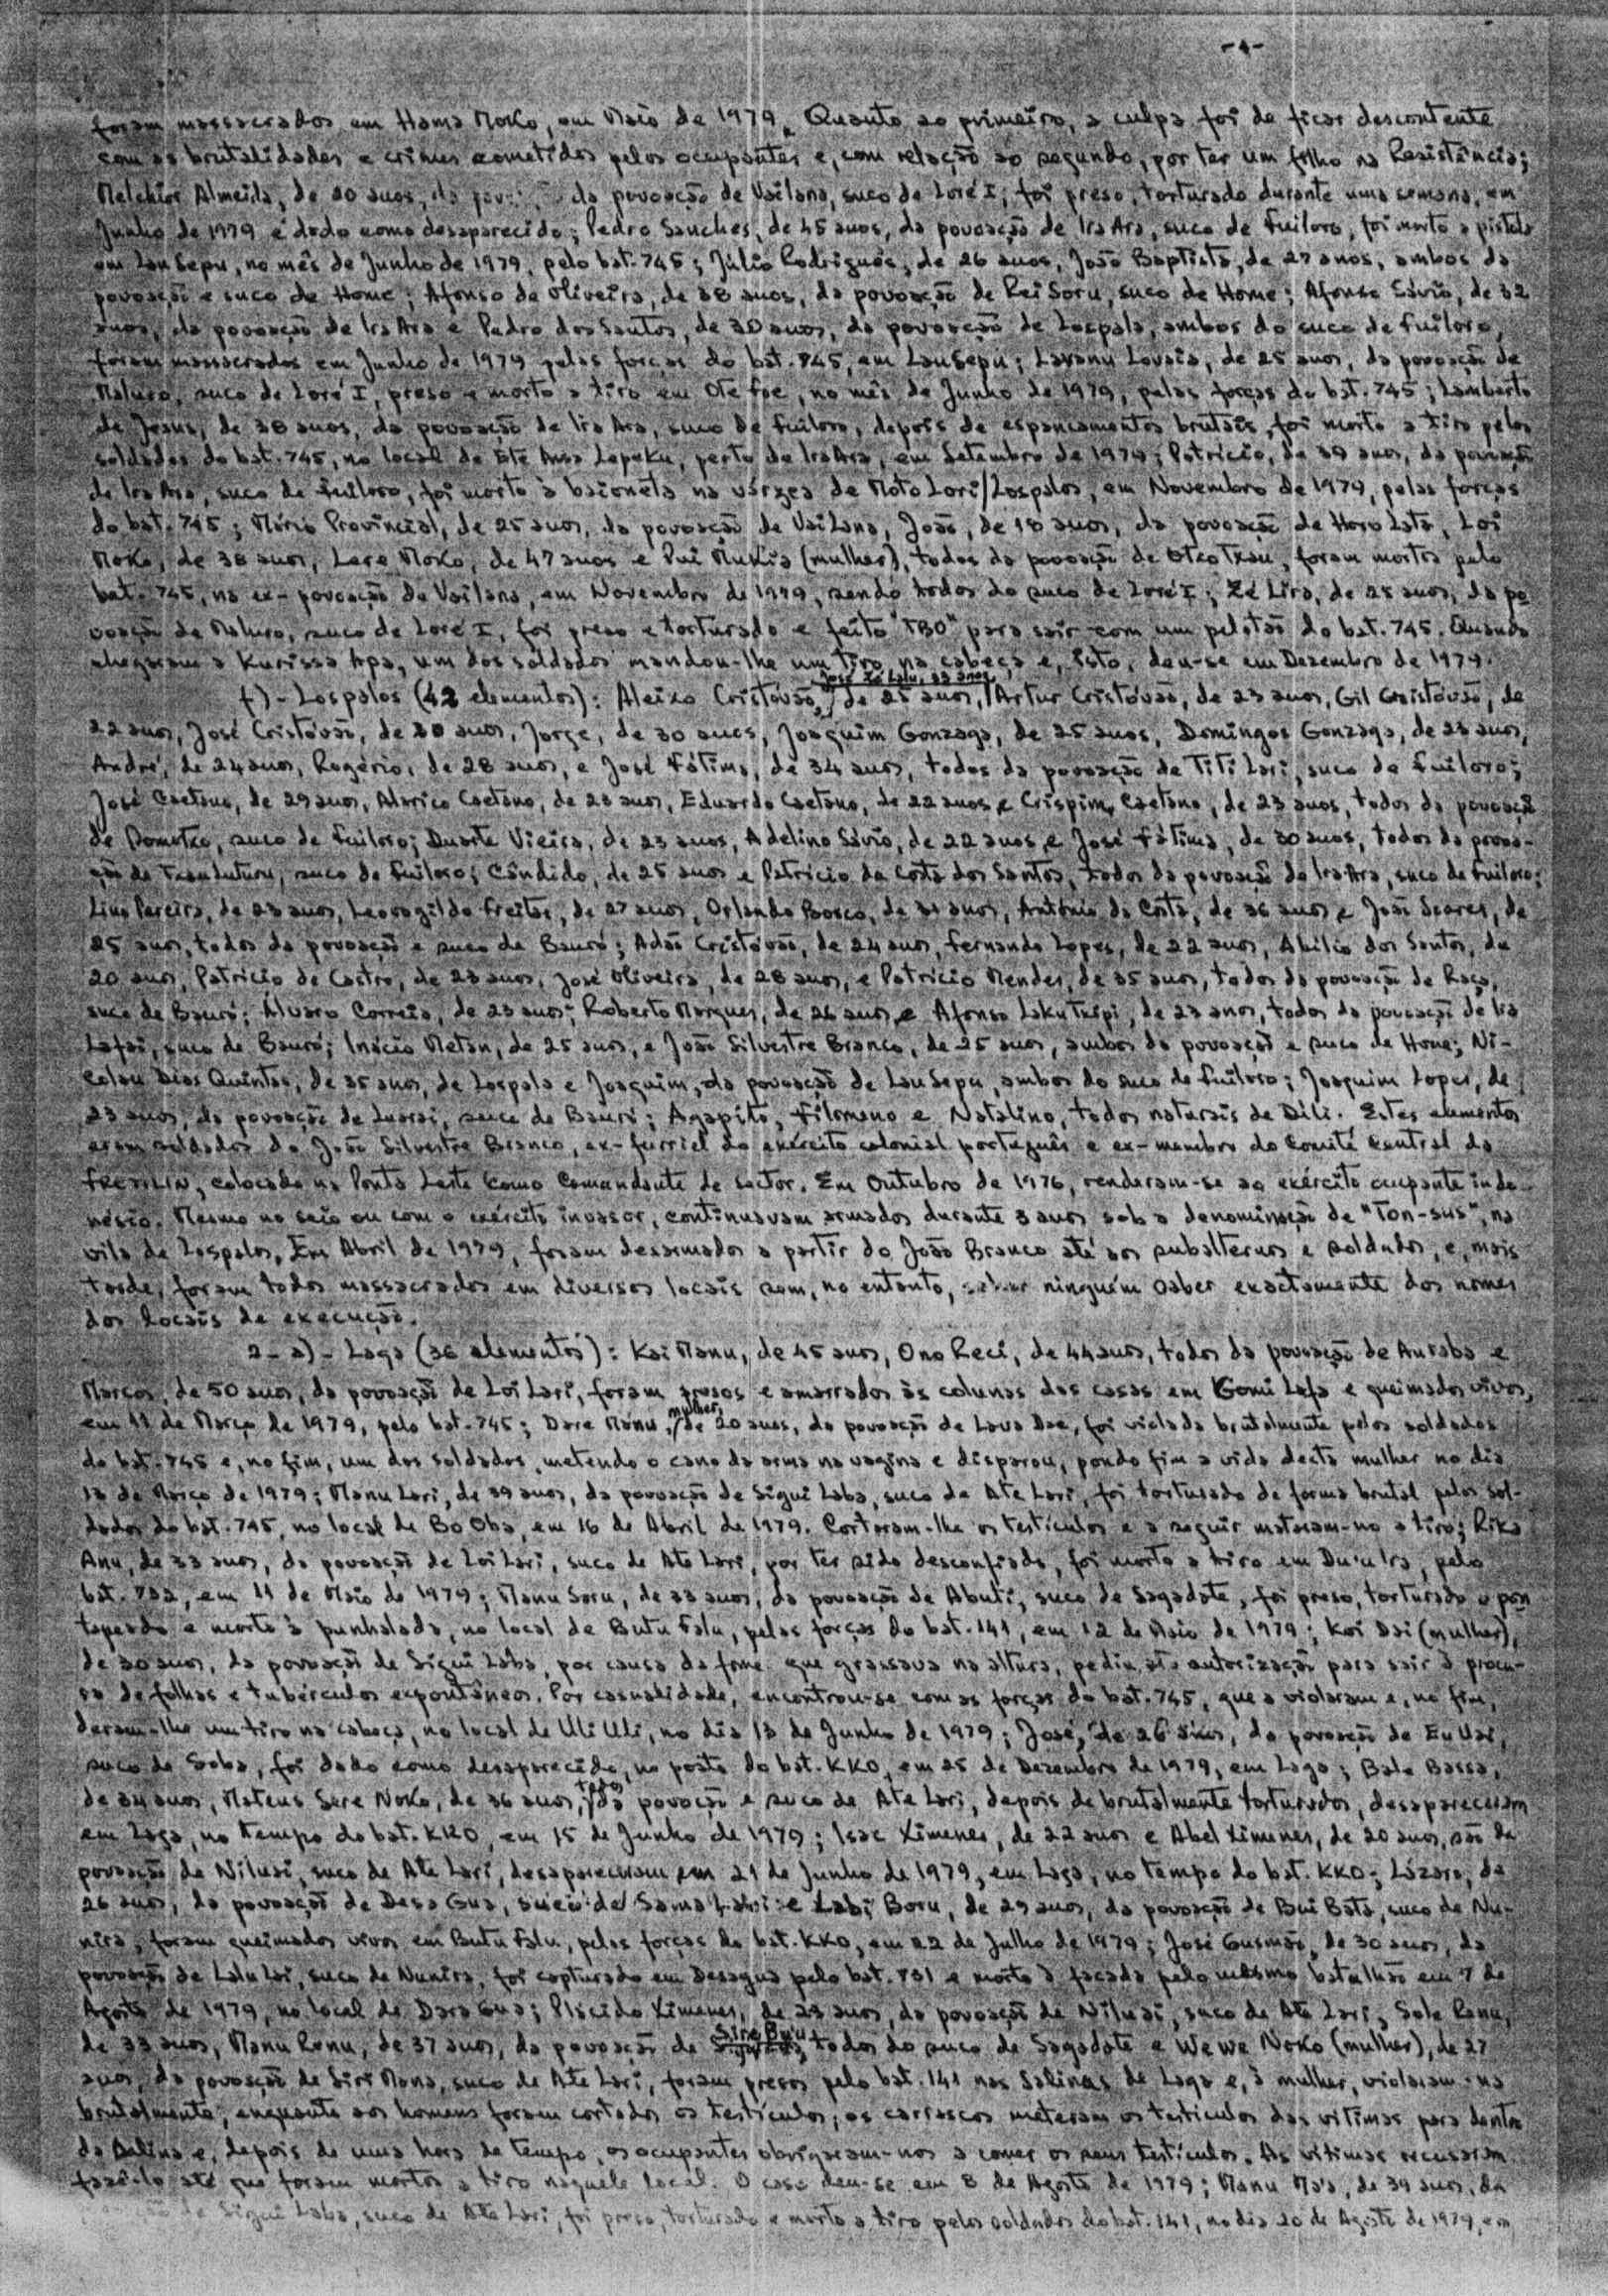 -4-
foram massacrados em Hama Moko, em Maio de 1979. Quanto ao primeiro, a culpa foi de ficar descontente
com as brutalidades e crimes cometidos pelos ocupantes e, com relação ao segundo, por ter um filho na Resistência;
Melchior Almeida, de 20 anos, da povoação de Vailana, suco de Loré I, foi preso, torturado durante uma semana, em
Junho de 1979 e dado como desaparecido; Pedro Sanches, de 45 anos, da povoação de Ira Ara, suco de Fuiloro, foi morto a pistola
em Lausepu, no mês de Junho de 1979, pelo bat. 745; Júlio Rodrigues, de 26 anos, João Baptista, de 27 anos, ambos da
povoação e suco de Home; Afonso de Oliveira, de 38 anos, da povoação de Rei Soru, suco de Home; Afonso Sávio, de 32
anos, da povoação de Ira Ara e Pedro dos Santos, de 30 anos, da povoação de Lospala, ambos do suco de Fuiloro,
foram massacrados em Junho de 1979 pelas forças do bat. 745, em Lausepu; Lavanu Lovaia, de 25 anos, da povoação de
Maluro, suco de Loré I, preso e morto a tiro em Ote foe, no mês de Junho de 1979, pelas forças do bat. 745; Lamberto
de Jesus, de 38 anos, da povoação de Ira Ara, suco de Fuiloro, depois de espancamentos brutais, foi morto a tiro pelos
soldados do bat. 745, no local de Ete Ama Lepeku, perto de Ira Ara, em Setembro de 1979; Patrício, de 39 anos, da povoação
de Ira Ara, suco de Fuiloro, foi morto à baioneta na várzea de Moto Lori/Lospalos, em Novembro de 1979, pelas forças
do bat. 745; Mário Provincial, de 25 anos, da povoação de Vailana, João, de 18 anos, da povoação de Horo Lata, Loi
Moko, de 38 anos, Lere Moko, de 47 anos e Pui Mukia (mulher), todos da povoação de Otco Txau, foram mortos pelo
bat. 745, na ex-povoação de Vailana, em Novembro de 1979, sendo todos do suco de Loré I; Zé Lira, de 25 anos, da po
voação de Maluro, suco de Loré I, foi preso e torturado e feito "TBO" para sair com um pelotão do bat. 745. Quando
chegaram a Kurissa Apa, um dos soldados mandou-lhe um tiro na cabeça e, isto, deu-se em Dezembro de 1979.
José Zé Lalu, 33 anos,
f) - Lospalos (42 elementos): Aleixo Cristóvão, de 25 anos, Artur Cristóvão, de 23 anos, Gil Cristóvão, de
22 anos, José Cristóvão, de 20 anos, Jorge, de 30 anos, Joaquim Gonzaga, de 25 anos, Domingos Gonzaga, de 23 anos,
André, de 24 anos, Rogério, de 28 anos, e José Fátima, de 34 anos, todos da povoação de Titi Lari, suco de Fuiloro;
José Caetano, de 29 anos, Alarico Caetano, de 23 anos, Eduardo Caetano, de 22 anos e Crispim Caetano, de 23 anos, todos da povoação
de Pamotxo, suco de Fuiloro; Duarte Vieira, de 23 anos, Adelino Sávio, de 22 anos e José Fátima, de 30 anos, todos da povoa-
ção de Txauluturu, suco de Fuiloro; Cândido, de 25 anos e Patrício da Costa dos Santos, todos da povoação de Ira Ara, suco de Fuiloro;
Lino Pereira, de 23 anos, Leovogildo Freitas, de 27 anos, Orlando Bosco, de 31 anos, António da Costa, de 36 anos e João Soares, de
25 anos, todos da povoação e suco de Bauró; Adão Cristóvão, de 24 anos, Fernando Lopes, de 22 anos, Abílio dos Santos, de
20 anos, Patrício de Castro, de 23 anos, José Oliveira, de 28 anos, e Patrício Mendes, de 35 anos, todos da povoação de Raça,
suco de Bauró; Álvaro Correia, de 23 anos, Roberto Marques, de 26 anos e Afonso Lakutxipi, de 23 anos, todos da povoação de Ira
Lafai, suco de Bauró; Inácio Metan, de 25 anos, e João Silvestre Branco, de 25 anos, ambos da povoação e suco de Home; Ni-
colau Dias Quintas, de 35 anos, de Lospala e Joaquim, da povoação de Lausepu, ambos do suco de Fuiloro; Joaquim Lopes, de
23 anos, da povoação de Luarai, suco de Bauró; Agapito, Filomeno e Natalino, todos naturais de Dili. Estes elementos
eram soldados do João Silvestre Branco, ex-furriel do exército colonial português e ex-membro do Comité Central da
FRETILIN, colocado na Ponta Leste como Comandante de Sector. Em Outubro de 1976, renderam-se ao exército ocupante indo-
nésio. Mesmo no seio ou com o exército invasor, continuavam armados durante 3 anos sob a denominação de "Ton-sus", na
vila de Lospalos. Em Abril de 1979, foram desarmados a partir do João Branco até aos subalternos e soldados, e, mais
tarde, foram todos massacrados em diversos locais sem, no entanto, ninguém saber exactamente dos nomes
dos locais de execução.
2 - a) - Laga (36 elementos): Kai Manu, de 45 anos, Ono Reci, de 44 anos, todos da povoação de Auraba e
Marcos, de 50 anos, da povoação de Loi Lari, foram presos e amarrados às colunas das casas em Gomi Lafa e queimados vivos,
em 11 de Março de 1979, pelo bat. 745; Dare Manu, mulher, de 20 anos, da povoação de Lava Dae, foi violada brutalmente pelos soldados
do bat. 745 e, no fim, um dos soldados, metendo o cano da arma na vagina e disparou, pondo fim a vida desta mulher no dia
13 de Março de 1979; Manu Lari, de 39 anos, da povoação de Sigui Laba, suco de Ate Lari, foi torturado de forma brutal pelos sol-
dados do bat. 745, no local de Bo Oba, em 16 de Abril de 1979. Cortaram-lhe os testículos e a seguir mataram-no a tiro; Rika
Anu, de 33 anos, da povoação de Loi Lari, suco de Ate Lari, por ter sido desconfiado, foi morto a tiro em Du'u Ira, pelo
bat. 732, em 11 de Maio de 1979; Manu Soru, de 33 anos, da povoação de Abuti, suco de Sagadate, foi preso, torturado e pon
tapeado e morto à punhalada, no local de Butu Falu, pelas forças do bat. 141, em 12 de Maio de 1979; Koi Dai (mulher),
de 30 anos, da povoação de Sigui Laba, por causa da fome que grassava na altura, pediu autorização para sair à procu-
ra de folhas e tubérculos expontâneos. Por casualidade, encontrou-se com as forças do bat. 745, que a violaram e, no fim,
deram-lhe um tiro na cabeça, no local de Uli Uli, no dia 13 de Junho de 1979; José, de 26 anos, da povoação de Eu Uai,
suco de Soba, foi dado como desaparecido, no posto do bat. KKO, em 25 de Dezembro de 1979, em Laga; Bala Bassa,
de 34 anos, Mateus Sere Noko, de 36 anos, todos da povoação e suco de Ate Lari, depois de brutalmente torturados, desapareceram
em Laga, no tempo do bat. KKO, em 15 de Junho de 1979; Isac Ximenes, de 22 anos e Abel Ximenes, de 20 anos, são da
povoação de Niluai, suco de Ate Lari, desapareceram em 21 de Junho de 1979, em Laga, no tempo do bat. KKO; Lázaro, de
26 anos, da povoação de Desa Gua, suco de Sama Lari e Labi Boru, de 29 anos, da povoação de Bui Bata, suco de Nu-
nira, foram queimados vivos em Butu Falu, pelas forças do bat. KKO, em 22 de Julho de 1979; José Gusmão, de 30 anos, da
povoação de Lalu Lai, suco de Nunira, foi capturado em Desagua pelo bat. 731 e morto à facada pelo mesmo batalhão em 7 de
Agosto de 1979, no local de Dara Gua; Plácido Ximenes, de 23 anos, da povoação de Niluai, suco de Ate Lari, Sole Ranu,
de 33 anos, Manu Ranu, de 37 anos, da povoação de Sira Bu'u, todos do suco de Sagadate e We We Noko (mulher), de 27
anos, da povoação de Siri Mana, suco de Ate Lari, foram presos pelo bat. 141 nas Salinas de Laga e, à mulher, violaram-na
brutalmente, enquanto aos homens foram cortados os testículos; os carrascos meteram os testículos das vítimas para dentro
da Salina e, depois de uma hora de tempo, os ocupantes obrigaram-nos a comer os seus testículos. As vítimas recusaram
fazê-lo até que foram mortos a tiro naquele local. O caso deu-se em 8 de Agosto de 1979; Manu Ma'a, de 39 anos, da
de Sigui Laba, suco de Ate Lari, foi preso, torturado e morto a tiro pelos soldados do bat. 141, no dia 20 de Agosto de 1979, em